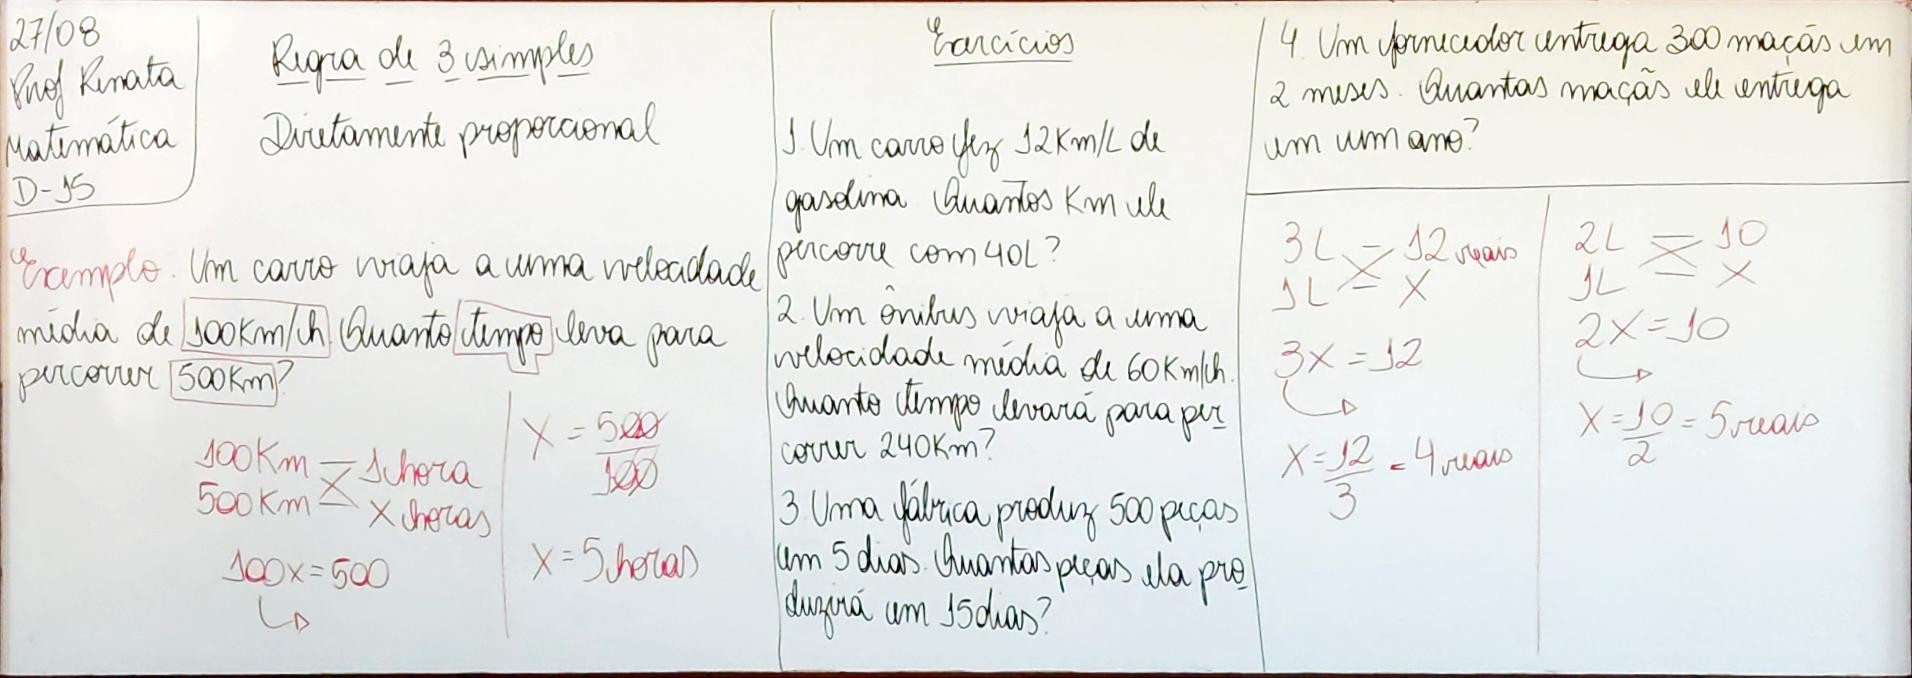 27/08
Prof Renata
Matemática
D-15
Regra de 3 simples
Diretamente proporcional
Exemplo: Um carro viaja a uma velocidade
média de 100Km/h. Quanto tempo leva para
percorrer 500Km?
100Km 1hora
500Km X horas
100x=500
X = 500/100
X = 5horas
Exercícios
1. Um carro fez 12Km/L de
gasolina. Quantos Km ele
percorre com 40L?
2. Um ônibus viaja a uma
velocidade média de 60Km/h.
Quanto tempo levará para per
correr 240Km?
3. Uma fábrica produz 500 peças
em 5 dias. Quantas peças ela pro
duzirá em 15dias?
4. Um fornecedor entrega 300 maçãs em
2 meses. Quantas maçãs ele entrega
em um ano?
3L 12 reais
1L X
3X = 12
X = 12/3 = 4 reais
2L 10
1L X
2X = 10
X = 10/2 = 5 reais